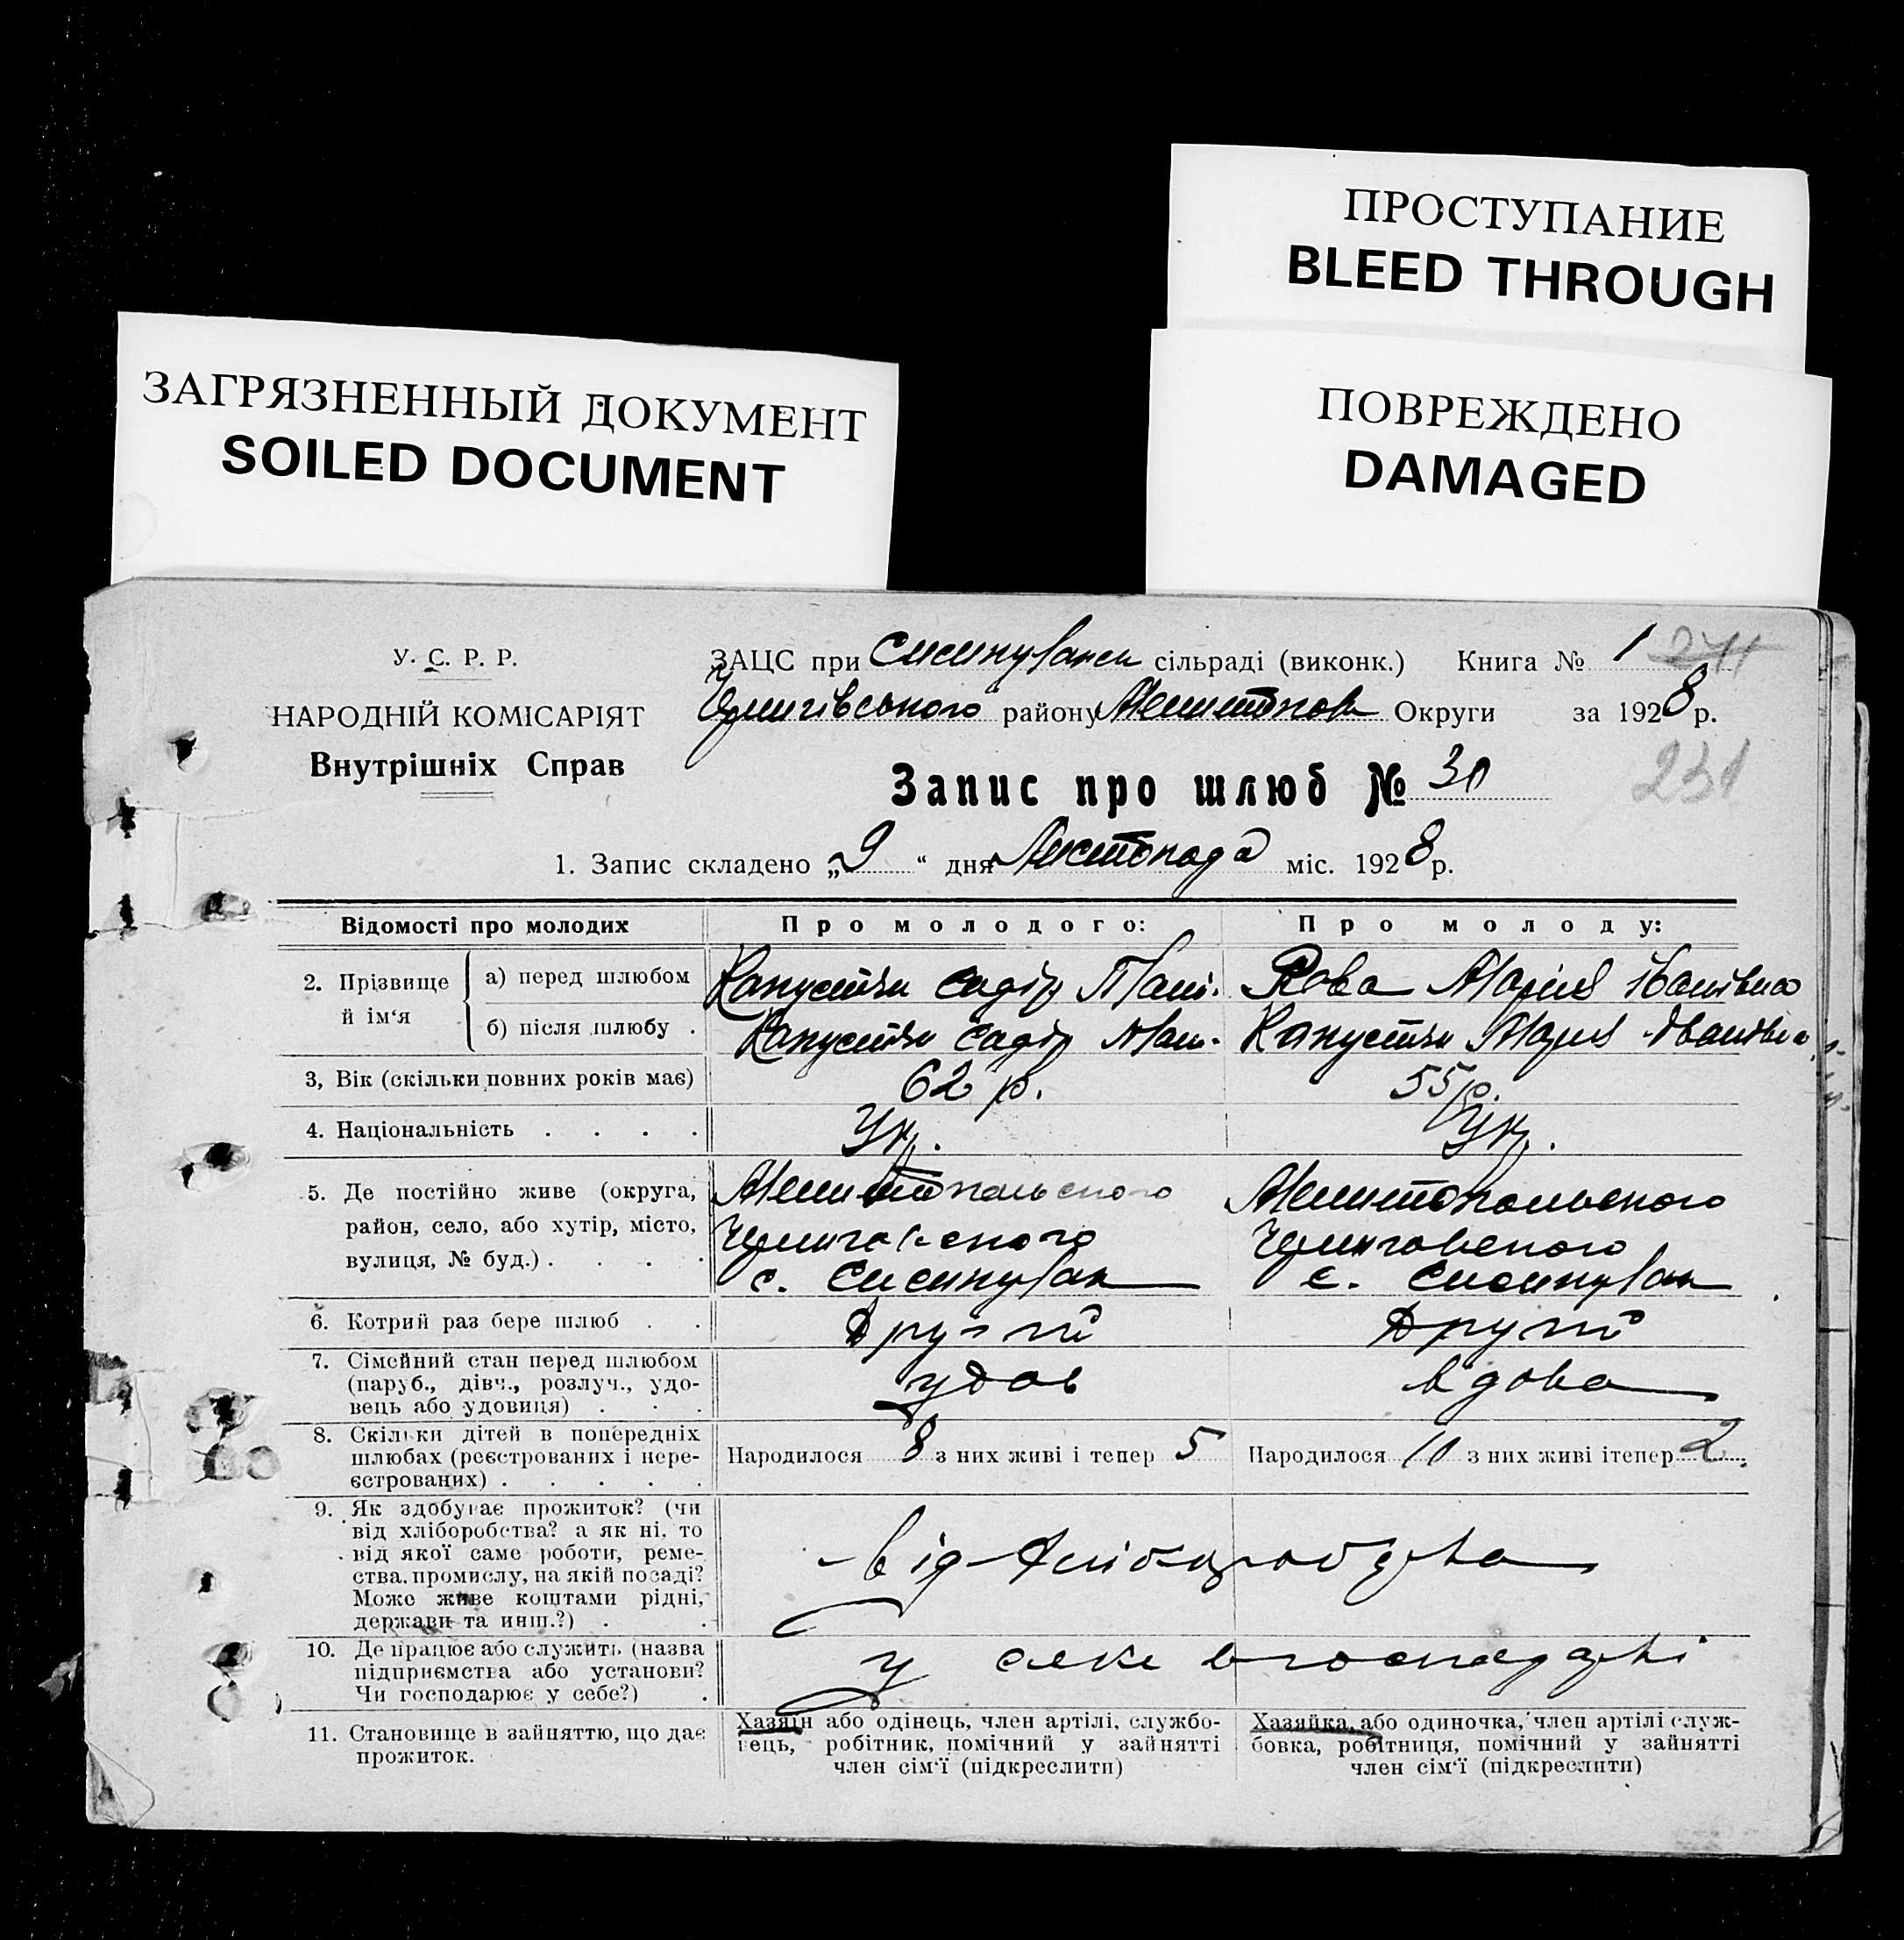 ПРОСТУПАНИЕ
BLEED THROUGH
ЗАГРЯЗНЕННЫЙ ДОКУМЕНТ
SOILED DOCUMENT
ПОВРЕЖДЕНО
DAMAGED
У. С. Р. Р.
НАРОДНІЙ КОМІСАРІЯТ
Внутрішніх Справ
ЗАЦС при сільраді (виконк.) Книга № 1
району Округи за 1928 р.
231
Запис про шлюб № 30
1. Запис складено „9“ дня Листопада міс. 1928 р.
Відомості про молодих Про молодого: Про молоду:
2. Прізвище й ім'я
а) перед шлюбом Капустян Мат. Марія Іванівна
б) після шлюбу . Капустян Капустян Марія Іванівна
3, Вік (скільки повних років має) 62 р. 55 р.
4. Національність . . . . Ук. Ук.
5. Де постійно живе (округа, Мелитопольского Мелитопольского
район, село, або хутір, місто,
вулиця, № буд.) . . . . с. с.
6. Котрий раз бере шлюб . . Другий Другий
7. Сімейний стан перед шлюбом
(паруб., дівч., розлуч., удо- удов вдова
вець або удовиця) . . .
8. Скільки дітей в попередніх
шлюбах (реєстрованих і нере- Народилося 8 з них живі і тепер 5 Народилося 10 з них живі ітепер 2
єстрованих) . . . . .
9. Як здобуває прожиток? (чи
від хліборобства? а як ні, то
від якої саме роботи, реме- від
ства, промислу, на якій посаді?
Може живе коштами рідні,
держави та инш.?) . .
10. Де працює або служить (назва
підприємства або установи? у
Чи господарює у себе?) .
11. Становище в зайняттю, що дає прожиток.
Хазяїн або одінець, член артілі, службо-
вець, робітник, помічний у зайнятті
член сім'ї (підкреслити)
Хазяйка, або одиночка, член артілі служ-
бовка, робітниця, помічний у зайнятті
член сім'ї (підкреслити)